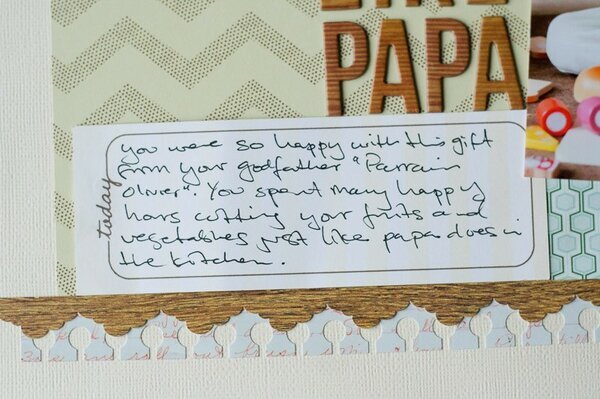 LIKE
PAPA
today
you were so happy with this gift
from your godfather "Parrain
Olivier". You spent many happy
hours cutting your fruits and
vegetables just like papa does in
the kitchen.